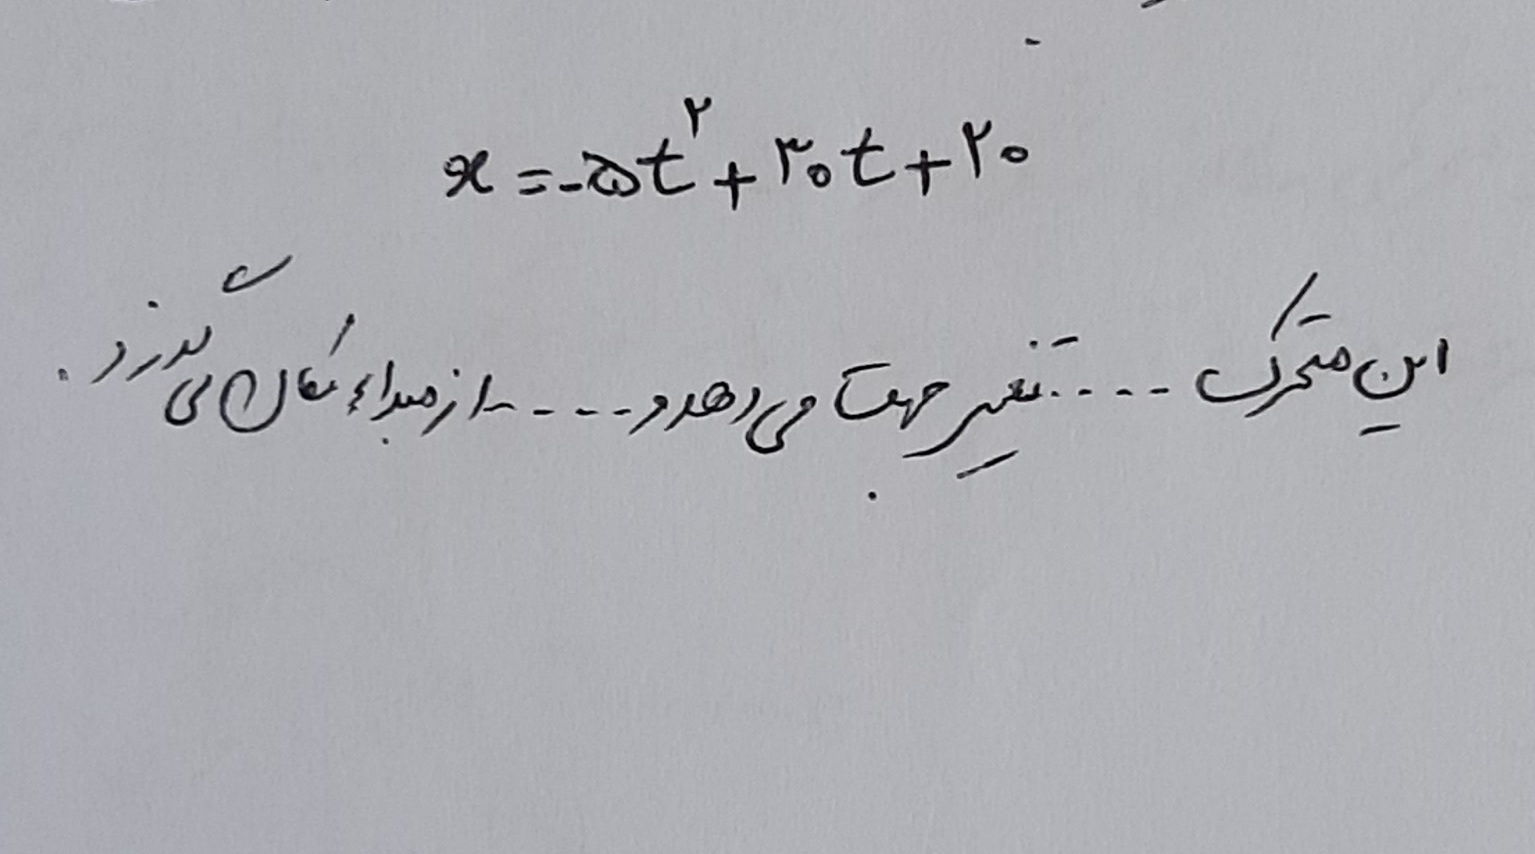 x = -۵t^۲ + ۳۰t + ۲۰
این متحرک ........ تغییر جهت می دهد و ........ از مبداء مکان می گذرد.